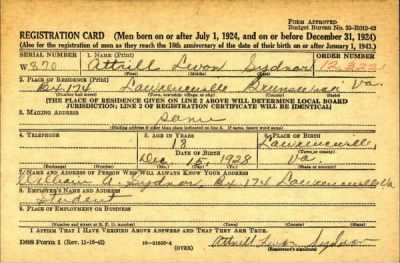 FORM APPROVED
BUDGET BUREAU NO. 33-R012-43
REGISTRATION CARD (Men born on or after July 1, 1924, and on or before December 31, 1924)
(Also for the registration of men as they reach the 18th anniversary of the date of their birth on or after January 1, 1943.)
SERIAL NUMBER
1. NAME (Print)
ORDER NUMBER
W 870
Attrell Lewon Sydnor
(First) (Middle) (Last)
2. PLACE OF RESIDENCE (Print)
Bx 174 Lawrenceville Brunswick Va.
(Number and street) (Town, township, village, or city) (County) (State)
[THE PLACE OF RESIDENCE GIVEN ON LINE 2 ABOVE WILL DETERMINE LOCAL BOARD
JURISDICTION; LINE 2 OF REGISTRATION CERTIFICATE WILL BE IDENTICAL]
3. MAILING ADDRESS
Same
[Mailing address if other than place indicated on line 2. If same, insert word same]
4. TELEPHONE
5. AGE IN YEARS
6. PLACE OF BIRTH
18
Lawrenceville
DATE OF BIRTH
(Town or county)
Dec. 15, 1928
Va.
(Exchange) (Number)
(Mo.) (Day) (Yr.)
(State or country)
7. NAME AND ADDRESS OF PERSON WHO WILL ALWAYS KNOW YOUR ADDRESS
William A. Sydnor, Bx 174 Lawrenceville Va
8. EMPLOYER'S NAME AND ADDRESS
Student
9. PLACE OF EMPLOYMENT OR BUSINESS
(Number and street or R. F. D. number) (Town) (County) (State)
I AFFIRM THAT I HAVE VERIFIED ABOVE ANSWERS AND THAT THEY ARE TRUE.
DSS Form 1 (Rev. 11-16-42)
16-21630-4
(OVER)
Sydnor
(Registrant's signature)